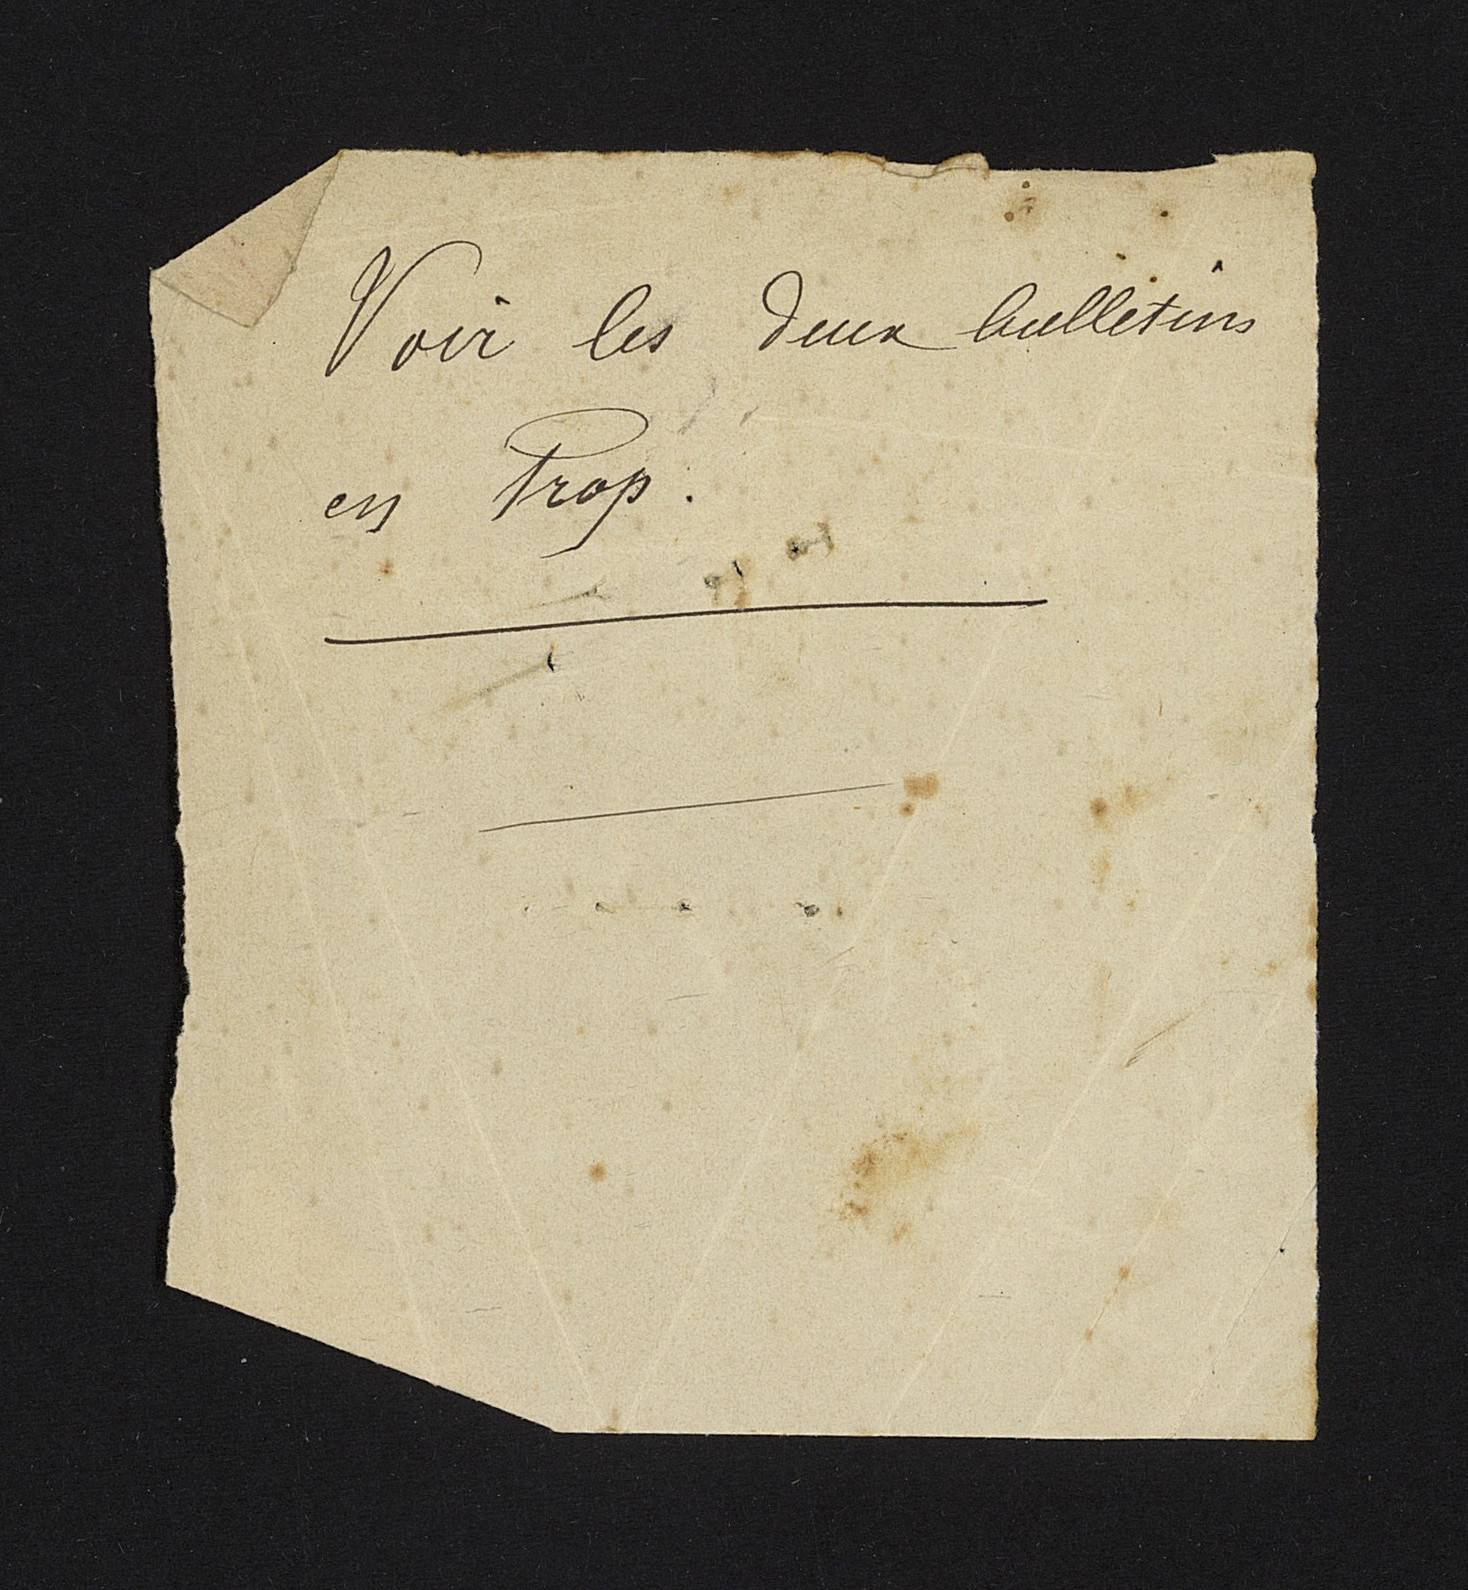 Voir les deux bulletins
en Prop.